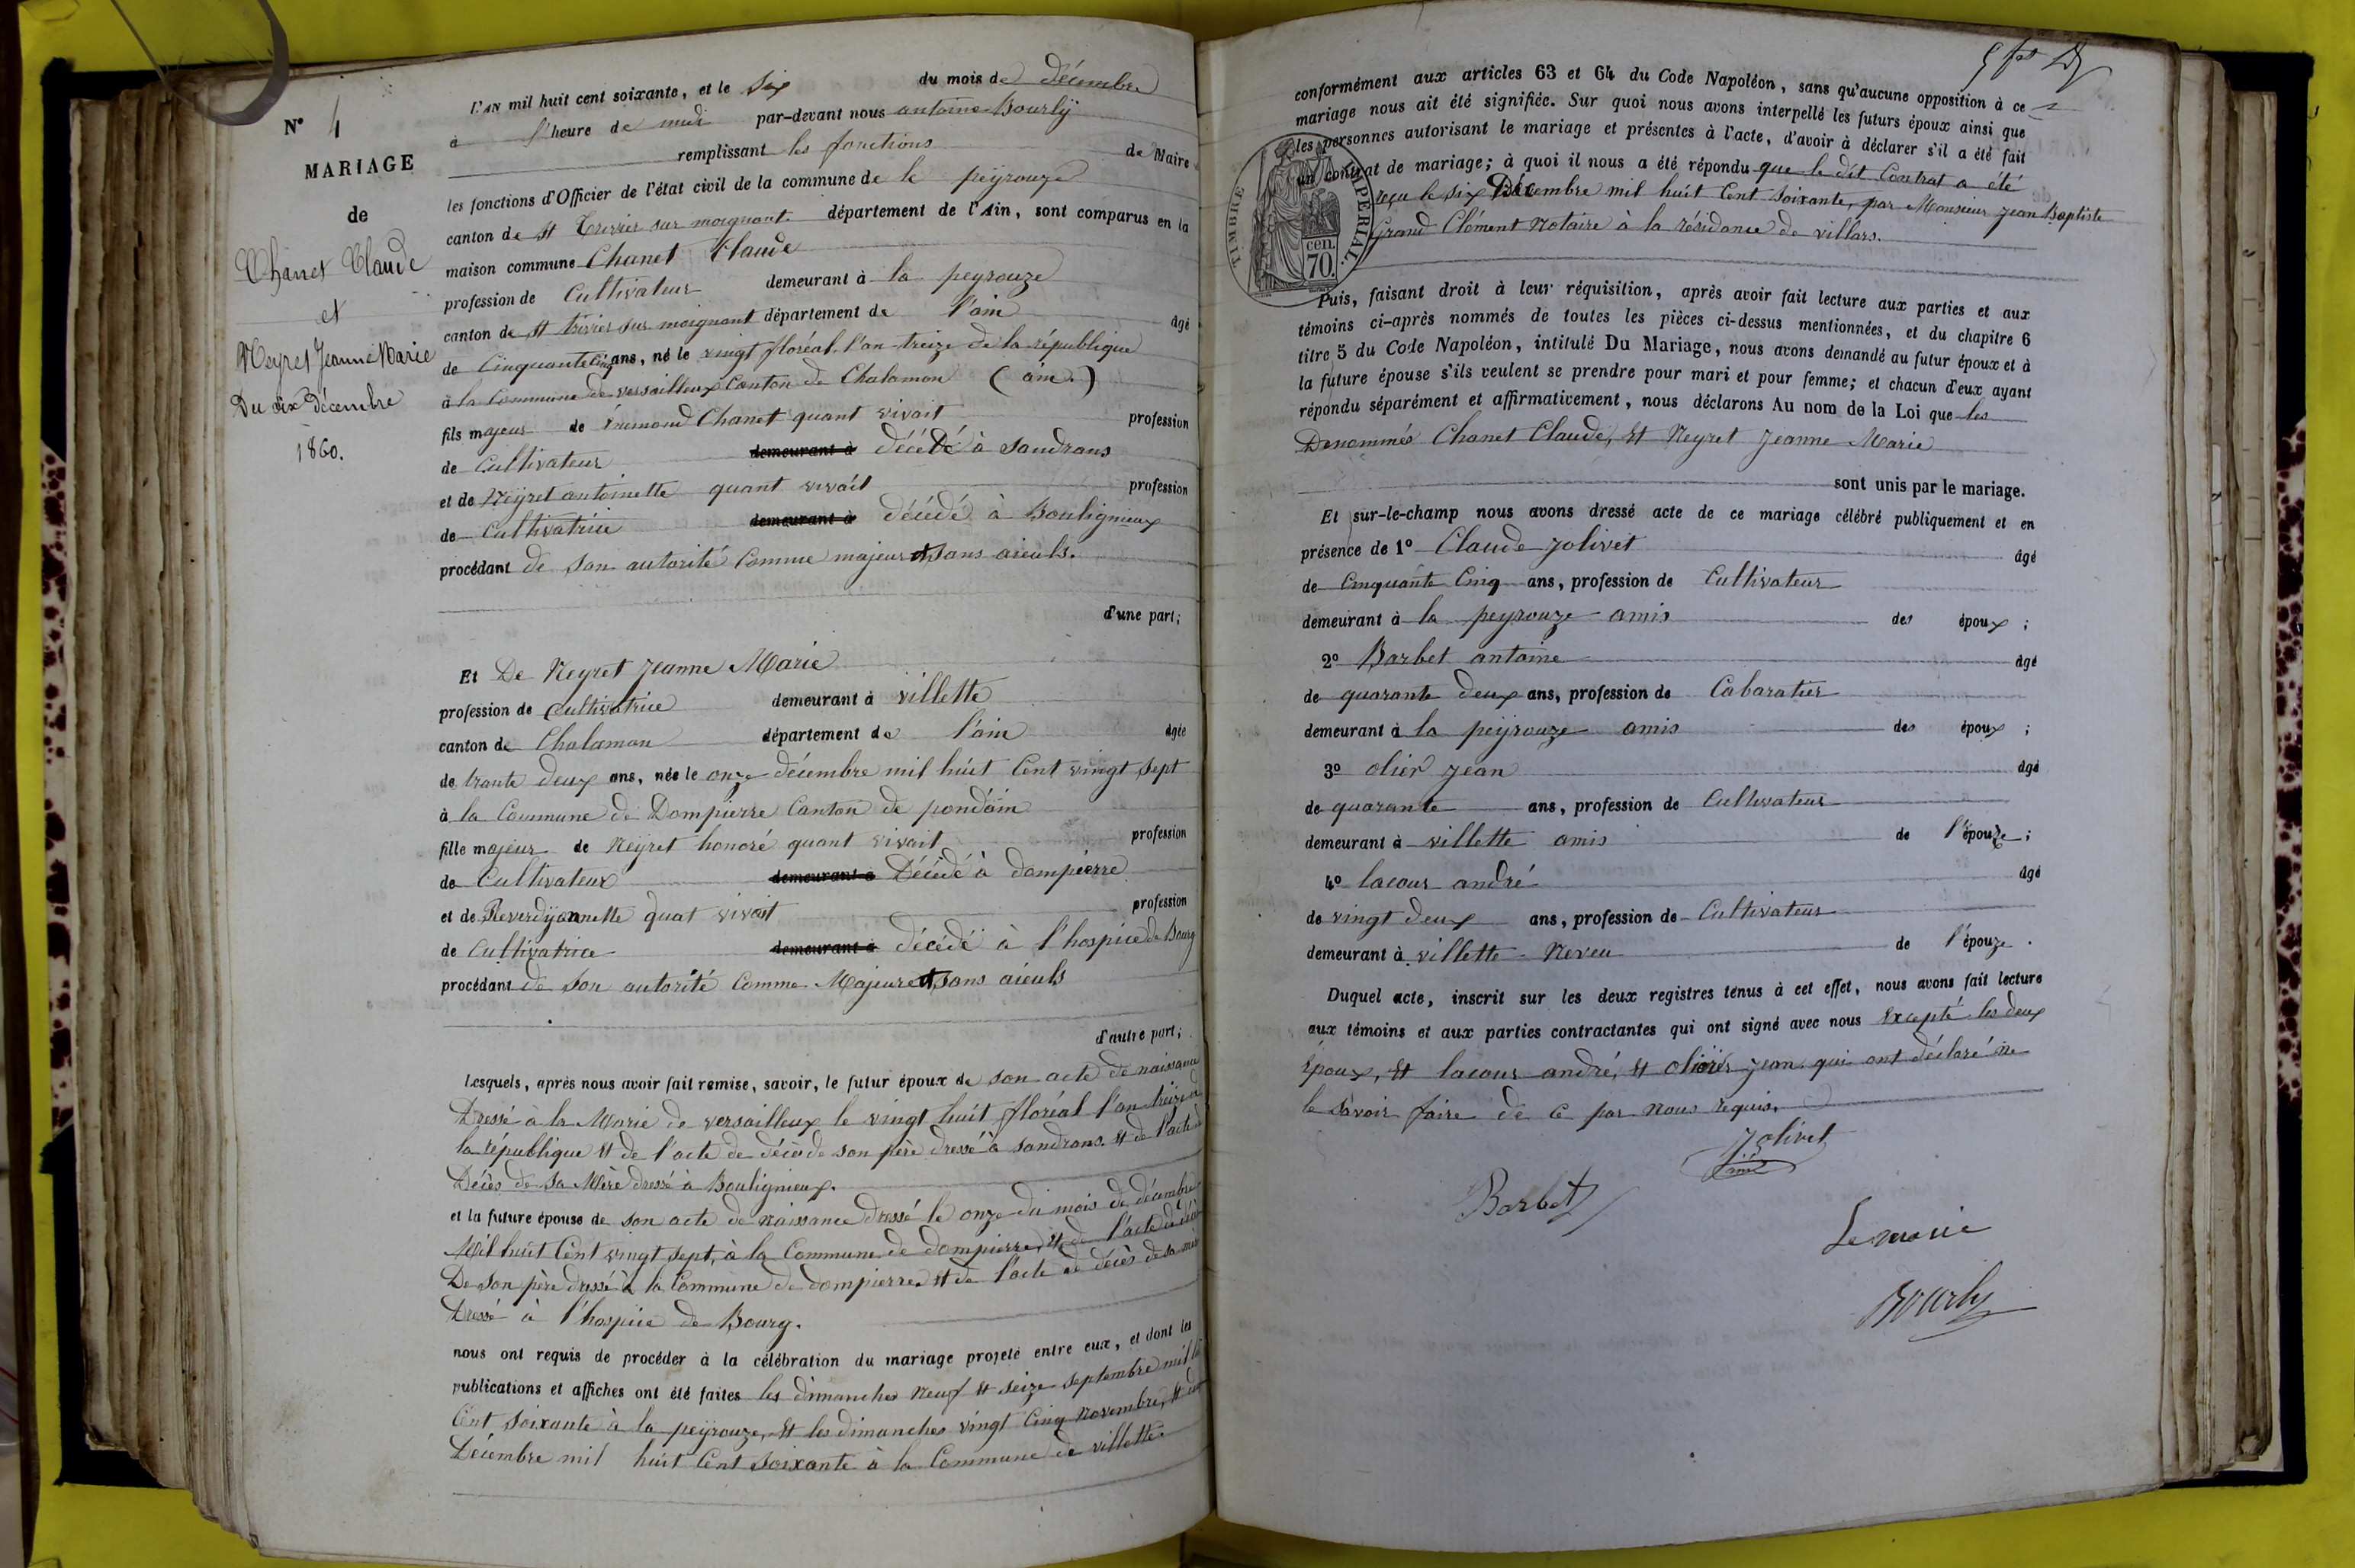 N° 4
MARIAGE
de
Chanet Claude
et
Neyret Jeanne Marie
Du six décembre
1860.
L'AN mil huit cent soixante, et le six du mois de décembre
à l'heure de midi par-devant nous antoine Bourly
remplissant les fonctions de Maire
les fonctions d'Officier de l'état civil de la commune de le peyrouze
canton de st Trivier sur moignant département de l'Ain, sont comparus en la
maison commune Chanet Claude
profession de Cultivateur demeurant à la peyrouze
canton de st trivier sur moignant département de l'ain âgé
de Cinquante Cinq ans, né le vingt floréal l'an treize de la république
à la Commune de versailleux Canton de Chalamon (ain.)
fils majeur de Chanet quant vivait profession
de Cultivateur demeurant à décédé à Sandrans
et de Neyret antoinette quant vivait profession
de Cultivatrice demeurant à décédé à Bouligneux
procédant de son autorité Comme majeur et sans aieuls.
d'une part;
Et De Neyret Jeanne Marie
profession de Cultivatrice demeurant à villette
canton de Chalamon département de l'ain âgée
de trante deux ans, née le onze décembre mil huit Cent vingt sept
à la Commune de Dompierre Canton de pondain
fille majeur de Neyret honoré quant vivait profession
de Cultivateur demeurant à Décédé à dompierre
et de Reverdy annette quat vivait profession
de Cultivatrice demeurant à décédé à l'hospice de Bourg
procédant de son autorité Comme Majeure et sans aieuls
d'autre part;
Lesquels, après nous avoir fait remise, savoir, le futur époux de son acte de naissance
Dressé à la Marie de versailleux le vingt huit floréal l'an treize de
la république et de l'acte de décès de son père dressé à Sandrans et de l'acte de
Décès de sa Mère dressé à Bouligneux.
et la future épouse de son acte de naissance dressé le onze du mois de décembre
Mil huit Cent vingt sept, à la Commune de dompierre, et de l'acte de décès
De son père dressé à la Commune de dompierre et de l'acte de décès de sa mère
Dressé à l'hospice de Bourg.
nous ont requis de procéder à la célébration du mariage projeté entre eux, et dont les
publications et affiches ont été faites les dimanches neuf et seize septembre mil
Cent soixante à la peyrouze, et les dimanches vingt Cinq novembre, et
Décembre mil huit Cent soixante à la Commune de villette
conformément aux articles 63 et 64 du Code Napoléon, sans qu'aucune opposition à ce
mariage nous ait été signifiée. Sur quoi nous avons interpellé les futurs époux ainsi que
les personnes autorisant le mariage et présentes à l'acte, d'avoir à déclarer s'il a été fait
un contrat de mariage; à quoi il nous a été répondu que le dit Contrat a été
reçu le six Décembre mil huit Cent soixante, par Monsieur Jean Baptiste
Grand Clément Notaire à la résidance de villars.
TIMBRE IMPÉRIAL.
cen.
70.
Puis, faisant droit à leur réquisition, après avoir fait lecture aux parties et aux
témoins ci-après nommés de toutes les pièces ci-dessus mentionnées, et du chapitre 6
titre 5 du Code Napoléon, intitulé Du Mariage, nous avons demandé au futur époux et à
la future épouse s'ils veulent se prendre pour mari et pour femme; et chacun d'eux ayant
répondu séparément et affirmativement, nous déclarons Au nom de la Loi que les
Denommés Chanet Claude, et Neyret Jeanne Marie
sont unis par le mariage.
Et sur-le-champ nous avons dressé acte de ce mariage célébré publiquement et en
présence de 1° Claude Jolivet âgé
de Cinquante Cinq ans, profession de Cultivateur
demeurant à la peyrouze amis des époux ;
2° Barbet antoine âgé
de quarante deux ans, profession de Cabaratier
demeurant à la peyrouze amis des époux ;
3° olier Jean âgé
de quarante ans, profession de Cultivateur
demeurant à villette amis de l'épouze ;
4° lacour andré âgé
de vingt deux ans, profession de Cultivateur
demeurant à villette Neveu de l'épouze .
Duquel acte, inscrit sur les deux registres tenus à cet effet, nous avons fait lecture
aux témoins et aux parties contractantes qui ont signé avec nous Excepté les deux
époux, et lacour andré, et olier Jean qui ont déclaré ne
le savoir faire de ce par nous requis.
Jolivet
Barbet
Le maire
Bourly